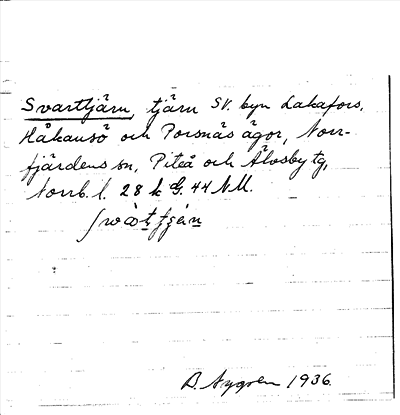 Svarttjärn, tjärn SV. byn Lakafors,
Håkansö och Porsnäs ägor, Norr-
fjärdens sn, Piteå och Älvsby tg,
Norrb. l. 28 k G. 44 NM.
B. Nygren 1936.